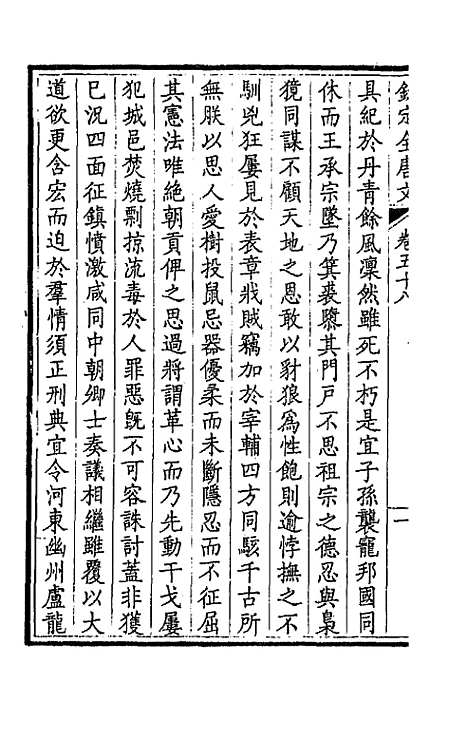 欽定全唐文 卷五十八 一
具紀於丹青餘風凜然雖死不朽是宜子孫襲寵邦國同
休而王承宗墜乃箕裘隳其門戶不思祖宗之德忍與梟
獍同謀不顧天地之恩敢以豺狼為性飽則逾悖撫之不
馴兇狂屢見於表章戕賊竊加於宰輔四方同駭千古所
無朕以思人愛樹投鼠忌器優柔而未斷隱忍而不征屈
其憲法唯絕朝貢俾之思過將謂革心而乃先動干戈屢
犯城邑焚燒剽掠流毒於人罪惡旣不可容誅討蓋非獲
巳況四面征鎮憤激咸同中朝卿士奏議相繼雖覆以大
道欲更含宏而迫於羣情須正刑典宜令河東幽州盧龍